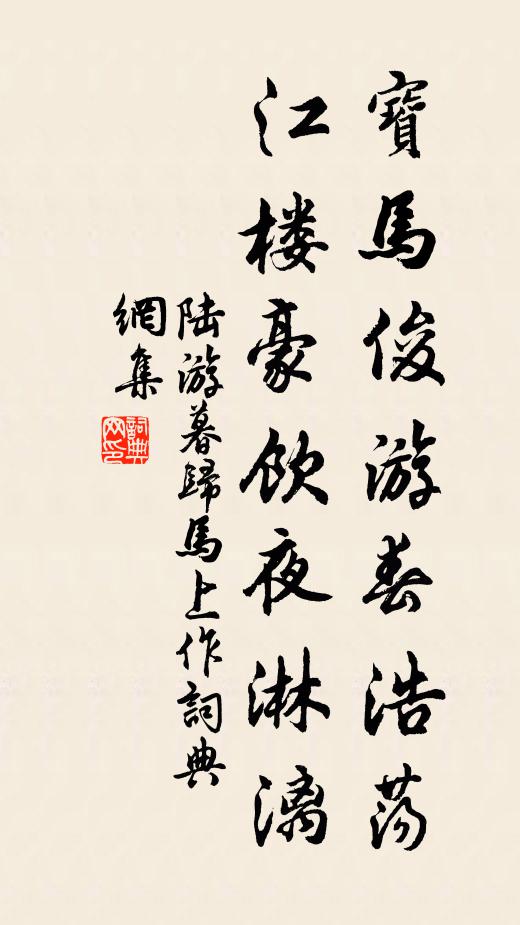 寶馬俊游春浩蕩
江楼豪飲夜淋漓
陆游暮歸馬上作詞典
網集
詞典
网印